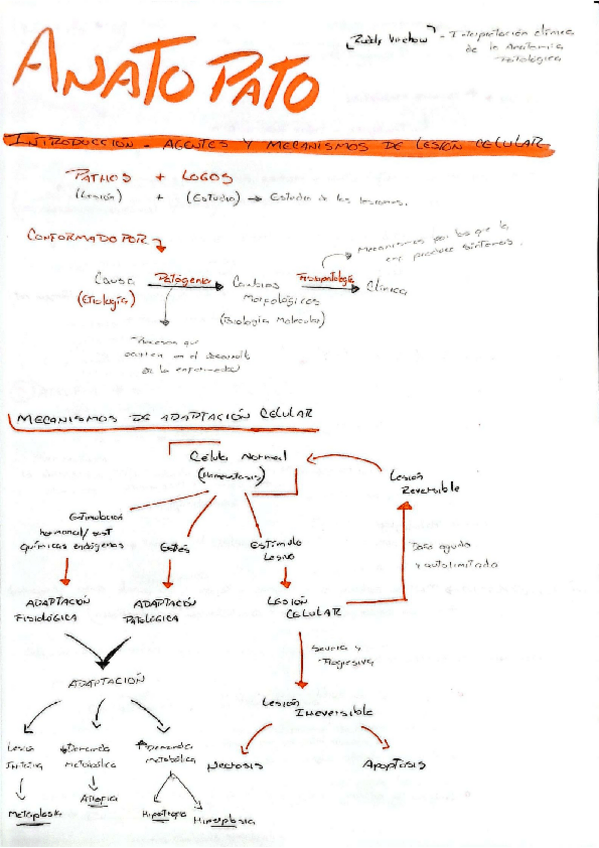 ANATO PATO
Rudolf Virchow - Interpretación clínica
de la Anatomía
Patológica
INTRODUCCIÓN - AGENTES Y MECANISMOS DE LESIÓN CELULAR
PATHOS + LOGOS
(Lesión) + (Estudio) → Estudio de las lesiones.
CONFORMADO POR
Mecanismos por los que la
produce síntomas.
Causa Patogenia Cambios Fisiopatología Clínica
(Etiología) Morfológicos
(Biología Molecular)
Procesos que
ocurren en el desarrollo
de la enfermedad
MECANISMOS DE ADAPTACIÓN CELULAR
Célula Normal
(Homeostasis)
Lesión
Reversible
Estimulación
hormonal/sust
químicas endógenas
Estrés
Estímulo
Lesivo
Daño agudo
y autolimitado
ADAPTACIÓN
FISIOLÓGICA
ADAPTACIÓN
PATOLÓGICA
LESIÓN
CELULAR
Severa y
Progresiva
ADAPTACIÓN
Lesión
Irreversible
Lesión
↓Demanda
metabólica
↑Demanda
metabólica
Necrosis
Apoptosis
Metaplasia
Atrofia
Hipertrofia
Hiperplasia